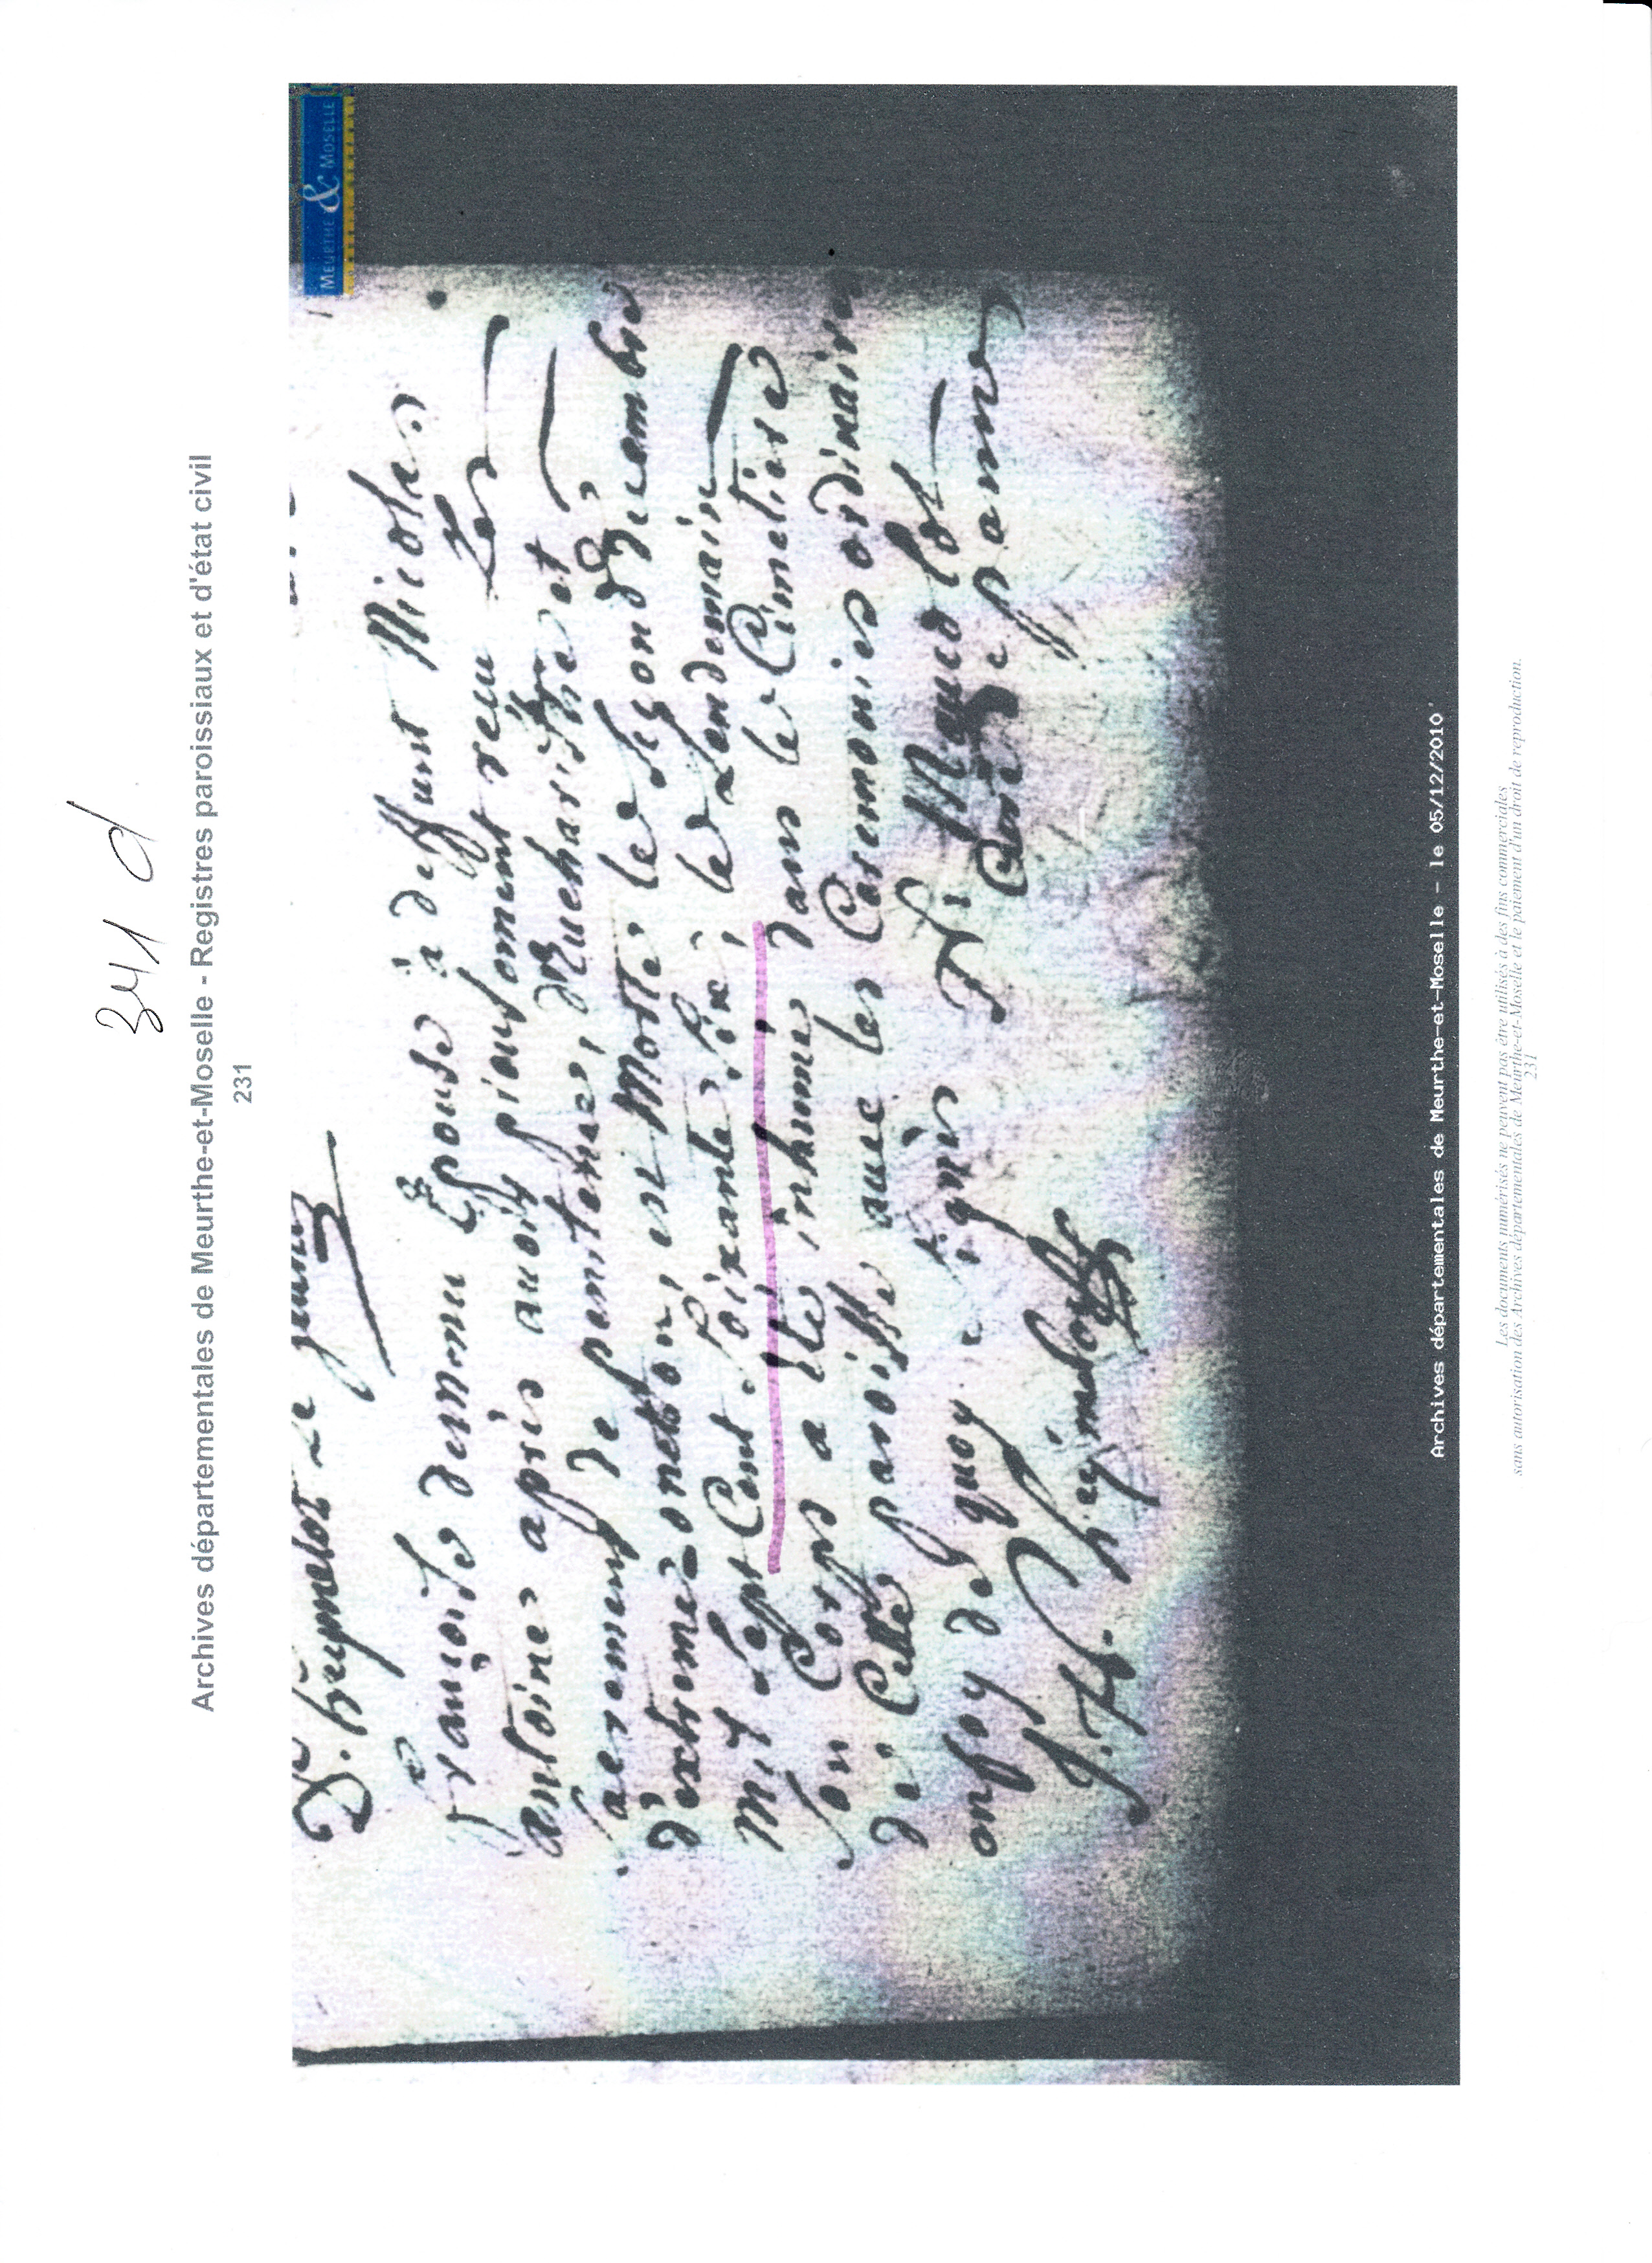 341 d
Archives départementales de Meurthe-et-Moselle - Registres paroissiaux et d'état civil
231
MEURTHE & MOSELLE
françoise demenu Epouse à deffunt Nicolas
antoine après avoir pieusement reçu Les
sacrements de penitence, d'Eucharistie et
d'extreme onction, est Morte le second decembre
Mil sept Cent soixante six; le Lendemain
son Corps a été inhumé dans le Cimetiere
de Cette paroisse avec les Ceremonies ordinaires
en foy de quoy signés N: Mauclot
Archives départementales de Meurthe-et-Moselle - le 05/12/2010
Les documents numérisés ne peuvent pas être utilisés à des fins commerciales
sans autorisation des Archives départementales de Meurthe-et-Moselle et le paiement d'un droit de reproduction.
231